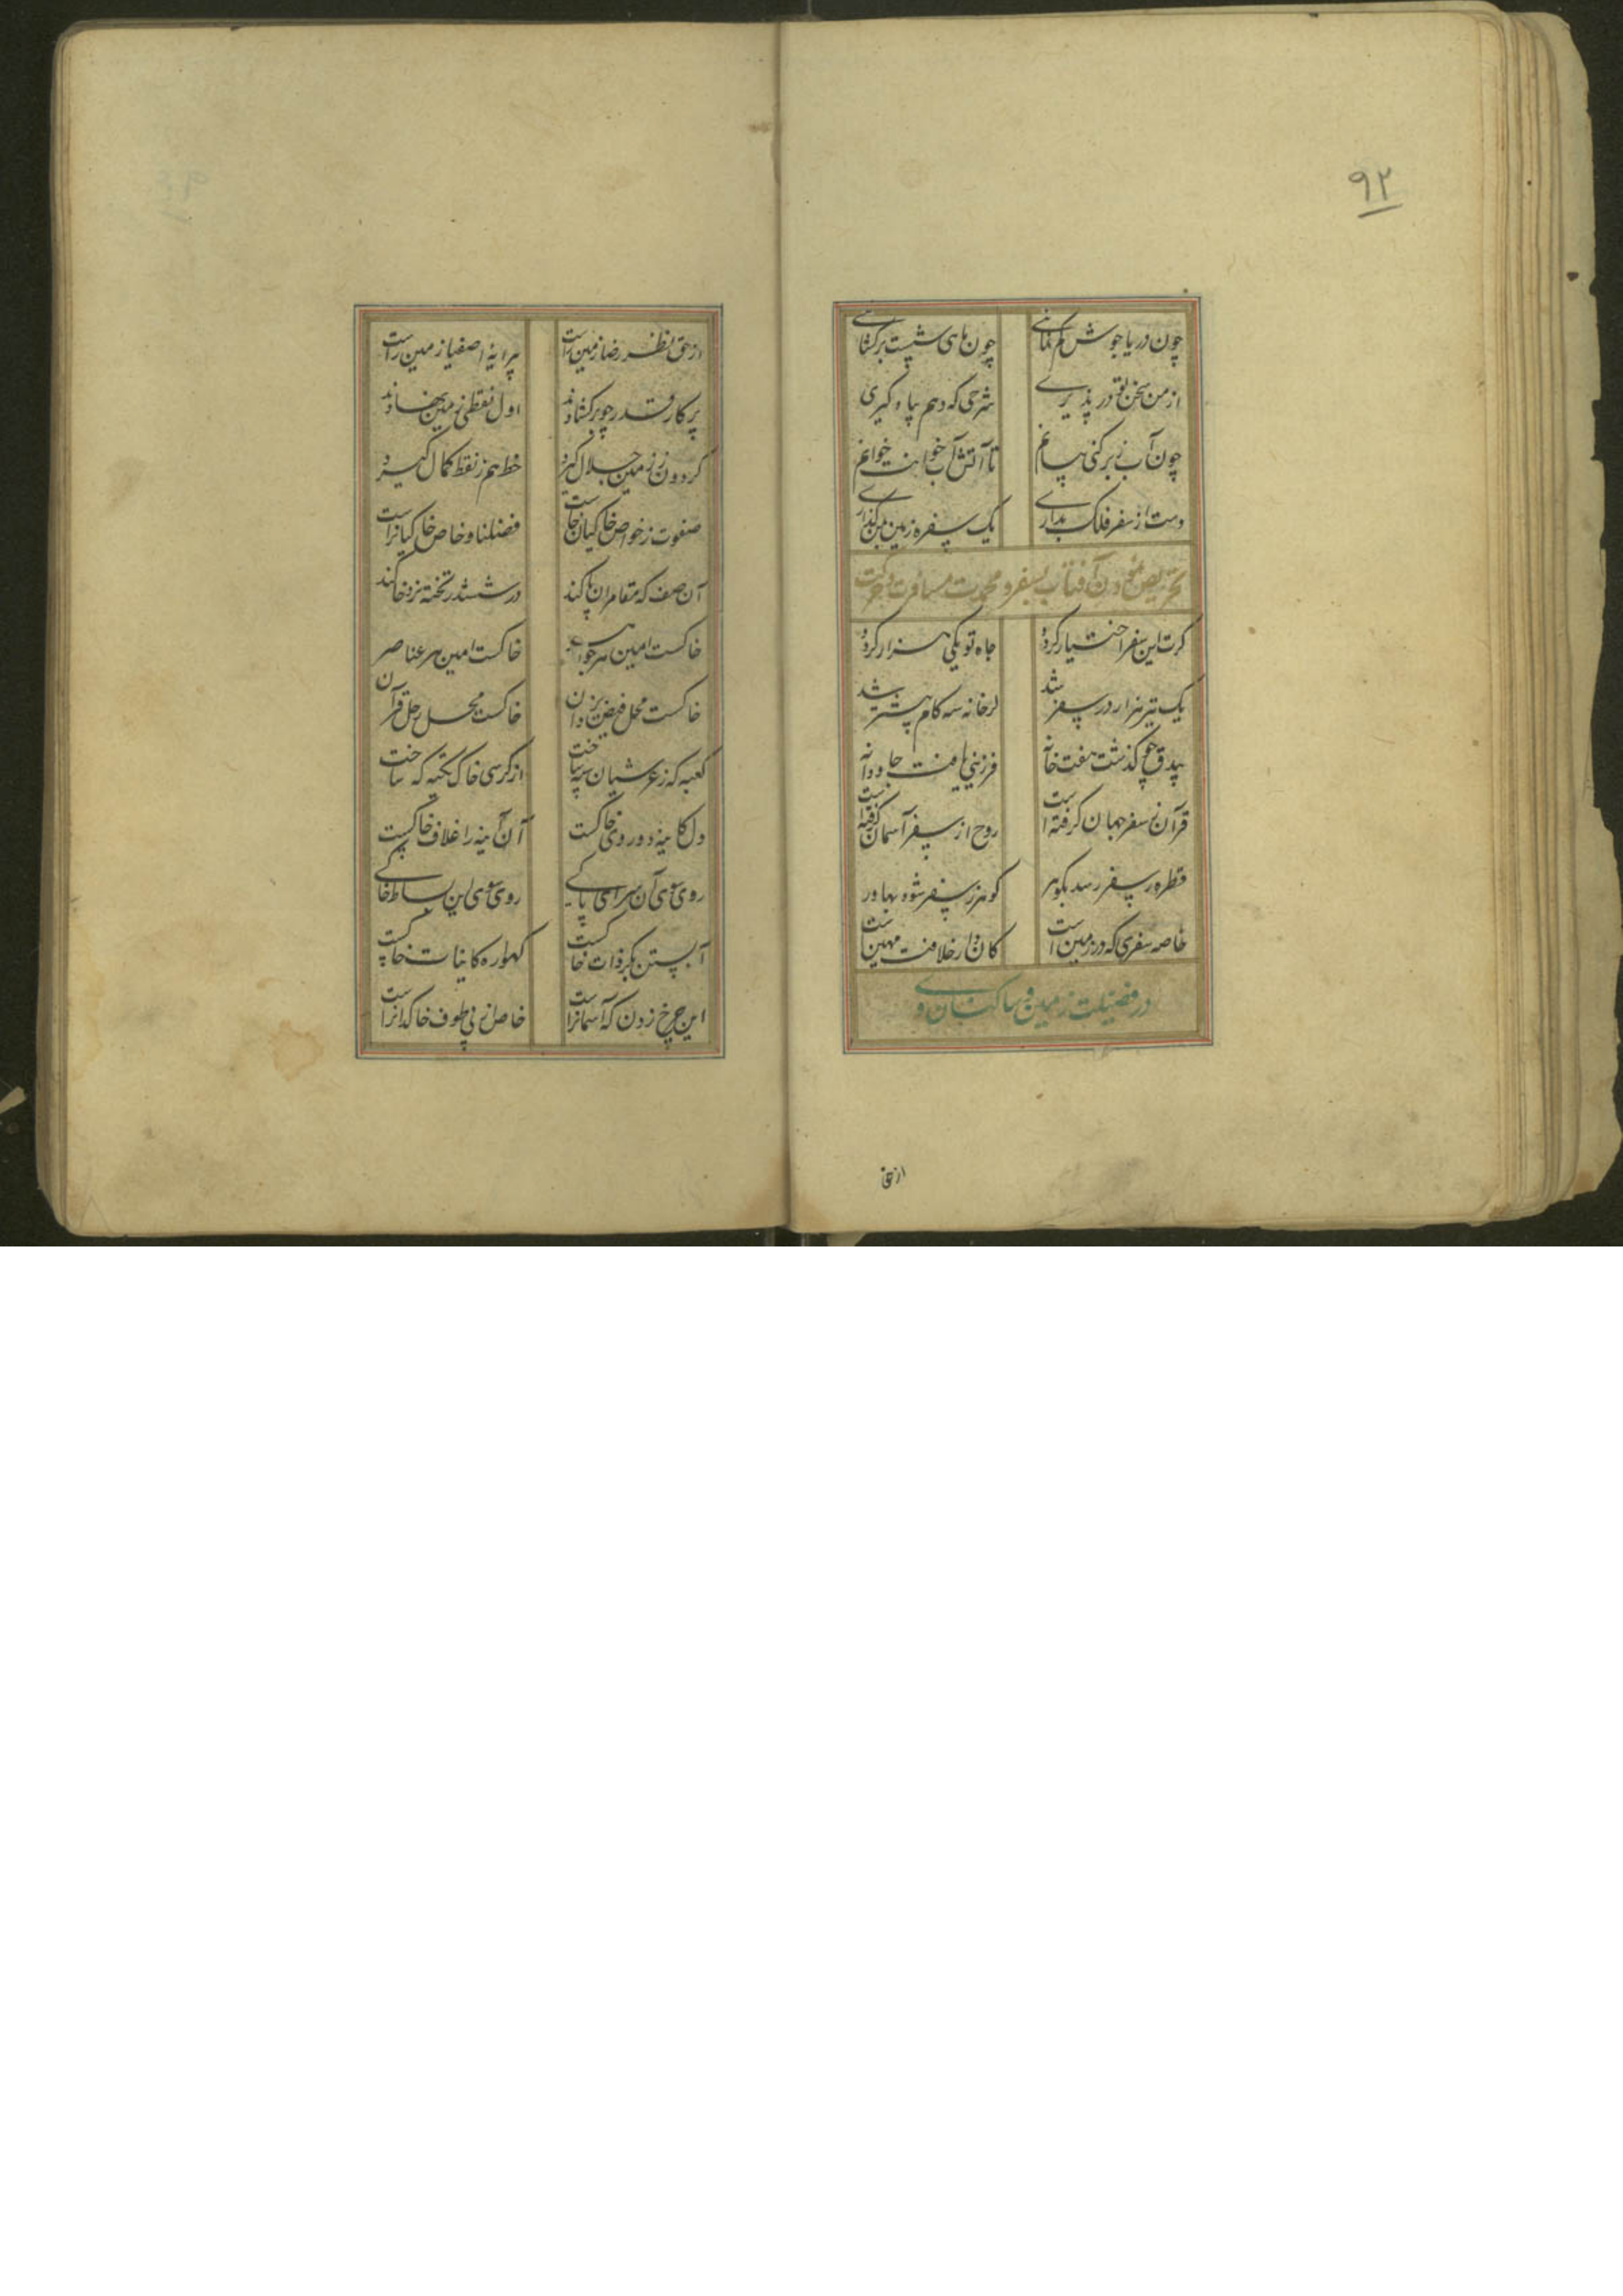 ۹۲
چون دریا جوش کم نمائی چون ماهی شیبت برکشائی
از من سخن تو در پذیری شرحی که دهم بیاد گیری
چون آب زبر کنی بیانم تا آتش آب خوانمت خوانم
دست از سفر فلک بداری یک سفره زمین بمن گذاری
تحریص نمودن آفتاب بسفر و محمدت مسافرت و حرکت
کرت این سفر اختیار کردد جاه تو یکی هزار کردد
یک تیر هزار در سفر شد لرخانه سه کام پیشتر شد
بیدق چو گذشت هفت خانه فرزینی یافت جاودانه
قرآن ز سفر جهان گرفته است روح از سفر آسمان گرفته است
قطره ز سفر رسد بگوهر گوهر ز سفر شود بهاور
خاصه سفری که در زمین است کان دار خلافت مهین است
در فضیلت زمین و ساکنان وی
از حق
از حق نظر رضا زمین راست پیرایه اصفیا زمین راست
پرکار قدر چو برکشادند اول نقطی زمین نهادند
گردون ز زمین جلال گیرد خط هم ز نقط کمال گیرد
صفوت ز خواص خاکیان خاست فضلنا و خاص خاکیانراست
آن صف که مقامران پاکند در ششدر تخته نرد خاکند
خاکست امین هر جواهر خاکست امین هر عناصر
خاکست محل فیض یزدان خاکست محل رحل قرآن
کعبه که ز عرشیان سپه ساخت از کرسی خاک تکیه که ساخت
دل کاینه دو روی خاکست آن آینه را غلاف خاکست
روی سوی آن سرای پاکی روی سوی این بساط خاکی
آبستن بکر ذات خاکست کهواره کاینات خاکست
این چرخ زدن که آسمانراست خاص از پی طوف خاکدانراست